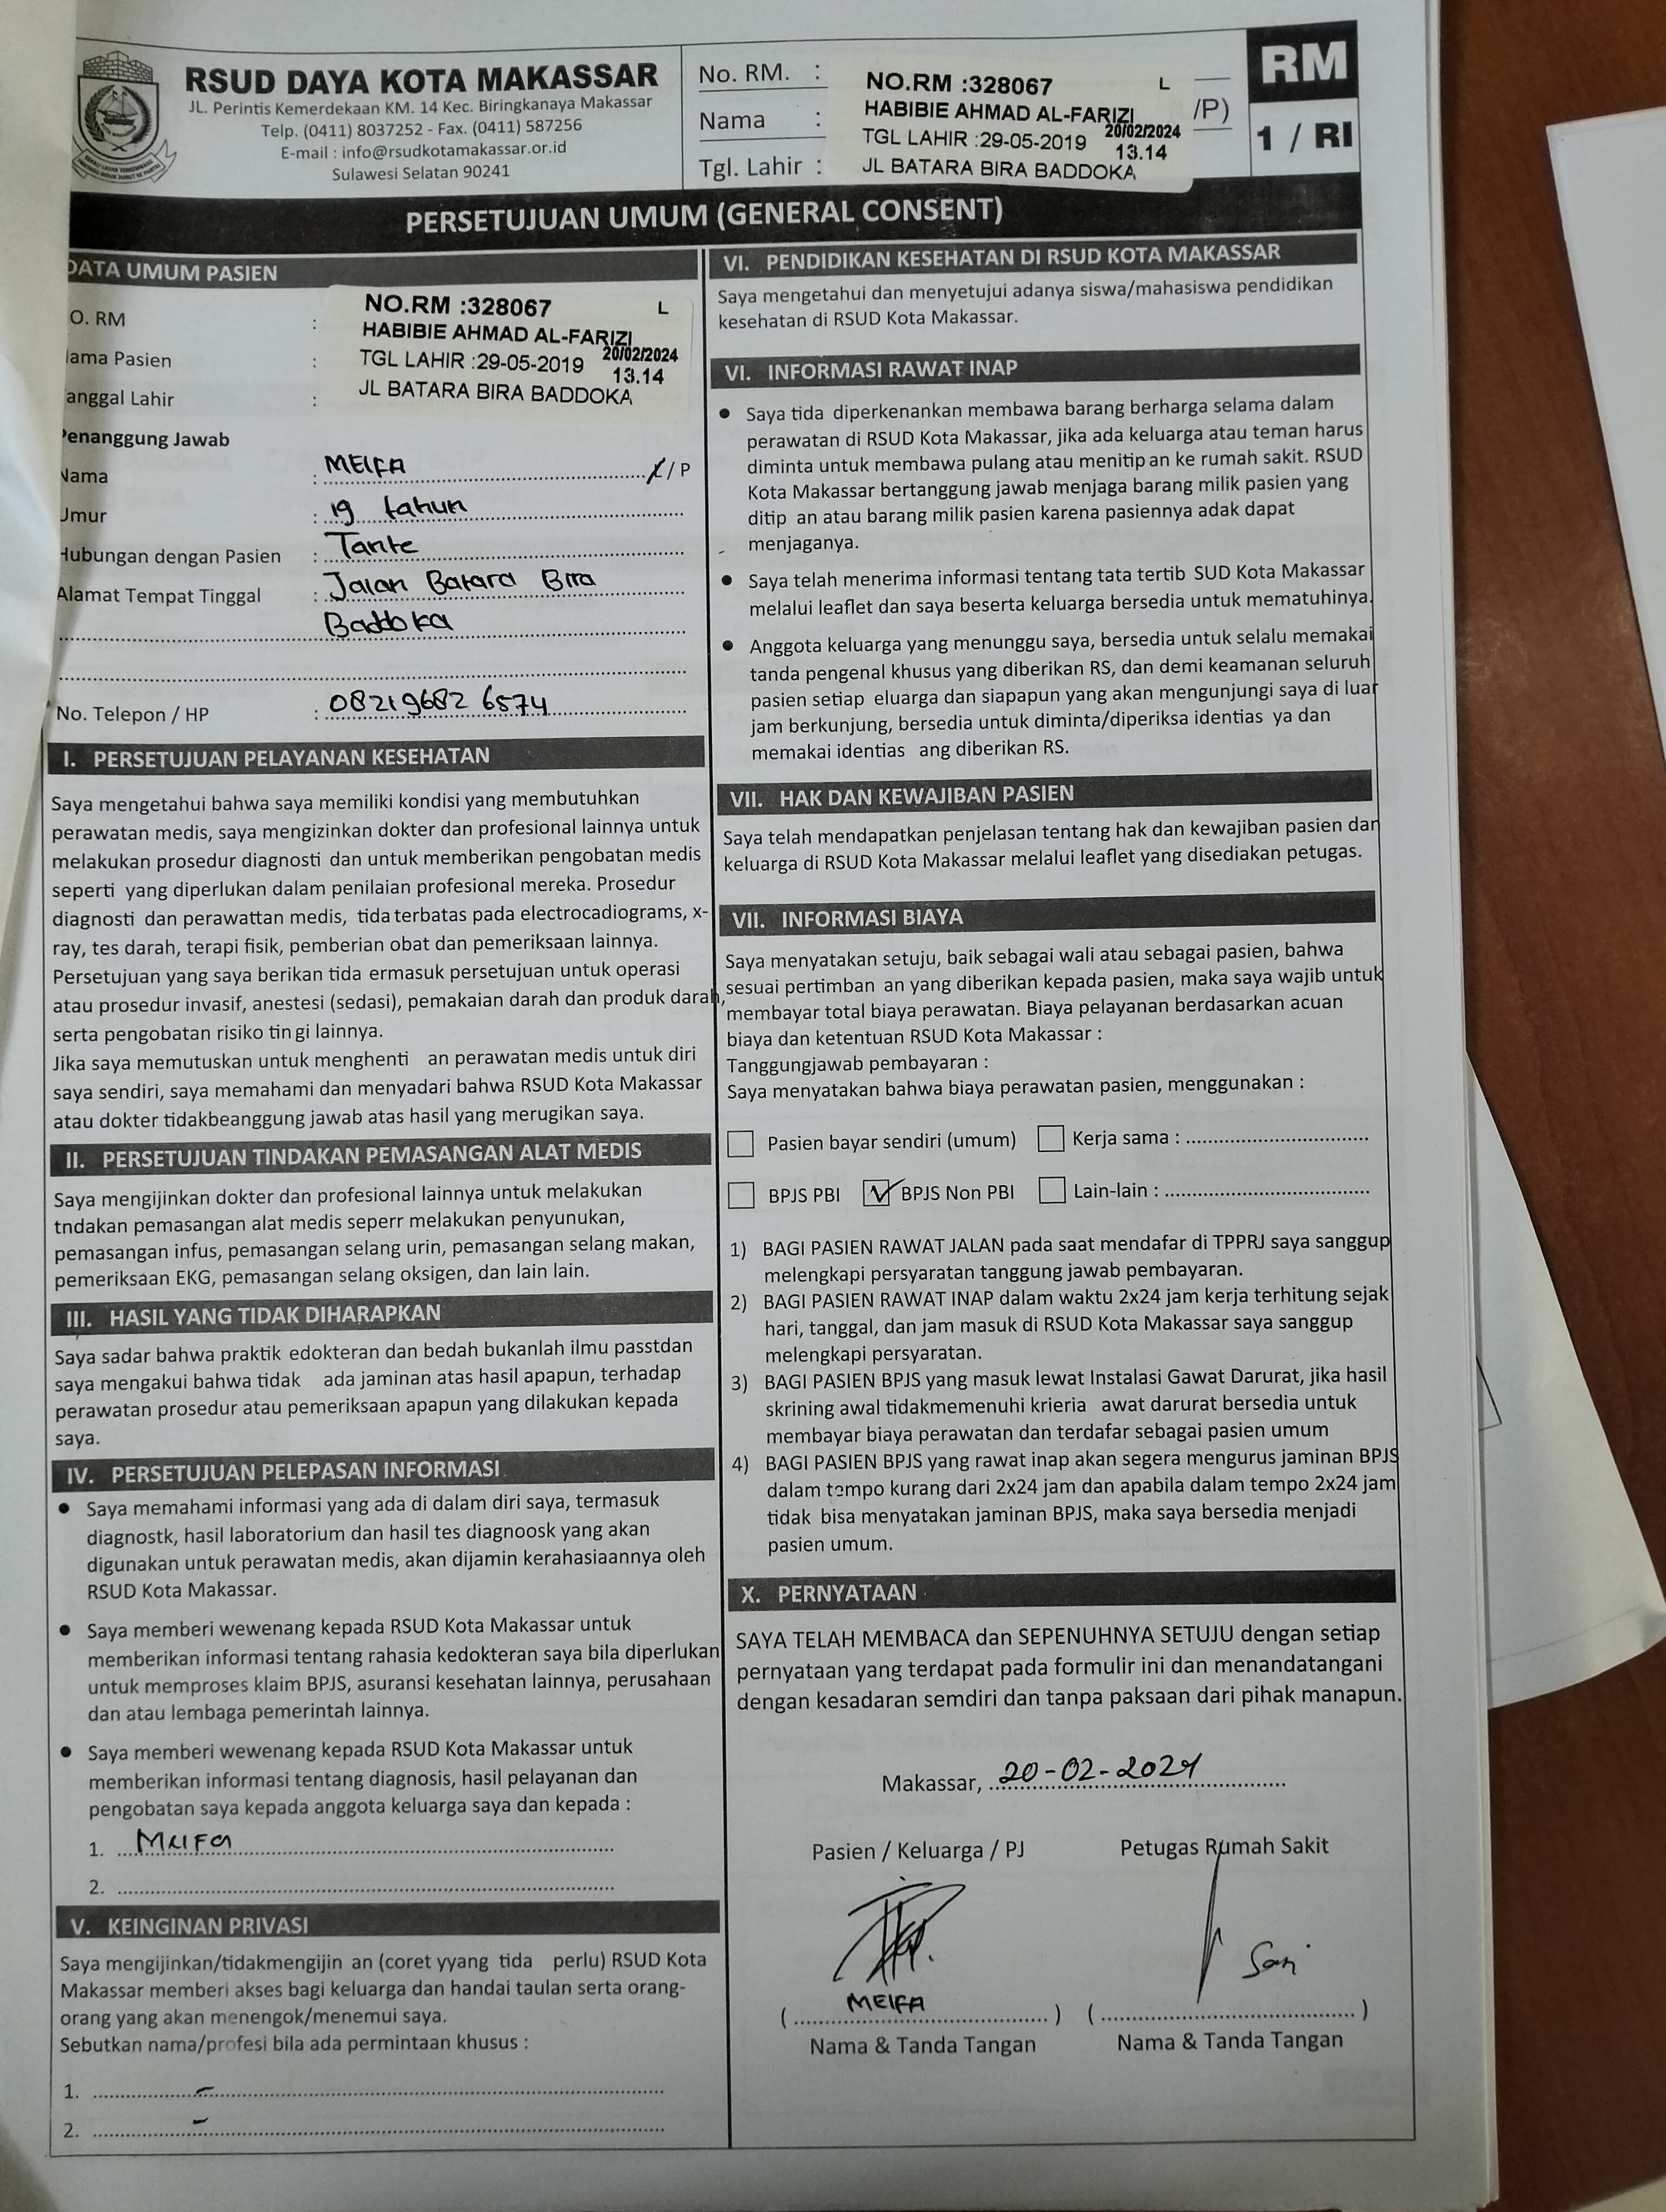 RSUD DAYA KOTA MAKASSAR
JL. Perintis Kemerdekaan KM. 14 Kec. Biringkanaya Makassar
Telp. (0411) 8037252 - Fax. (0411) 587256
E-mail : info@rsudkotamakassar.or.id
Sulawesi Selatan 90241
No. RM. :
Nama :
Tgl. Lahir :
NO.RM :328067 L
HABIBIE AHMAD AL-FARIZI
TGL LAHIR :29-05-2019 20/02/2024
13.14
JL BATARA BIRA BADDOKA
/P)
RM
1 / RI
PERSETUJUAN UMUM (GENERAL CONSENT)
DATA UMUM PASIEN
O. RM :
ama Pasien :
anggal Lahir :
NO.RM :328067 L
HABIBIE AHMAD AL-FARIZI
TGL LAHIR :29-05-2019 20/02/2024
13.14
JL BATARA BIRA BADDOKA
Penanggung Jawab
Nama : MEIFA L/ P
Umur : 19 tahun
Hubungan dengan Pasien : Tante
Alamat Tempat Tinggal : Jalan Batara Bira
Baddoka
No. Telepon / HP : 082196826574
I. PERSETUJUAN PELAYANAN KESEHATAN
Saya mengetahui bahwa saya memiliki kondisi yang membutuhkan
perawatan medis, saya mengizinkan dokter dan profesional lainnya untuk
melakukan prosedur diagnosti dan untuk memberikan pengobatan medis
seperti yang diperlukan dalam penilaian profesional mereka. Prosedur
diagnosti dan perawattan medis, tida terbatas pada electrocadiograms, x-
ray, tes darah, terapi fisik, pemberian obat dan pemeriksaan lainnya.
Persetujuan yang saya berikan tida ermasuk persetujuan untuk operasi
atau prosedur invasif, anestesi (sedasi), pemakaian darah dan produk darah,
serta pengobatan risiko tin gi lainnya.
Jika saya memutuskan untuk menghenti an perawatan medis untuk diri
saya sendiri, saya memahami dan menyadari bahwa RSUD Kota Makassar
atau dokter tidakbeanggung jawab atas hasil yang merugikan saya.
II. PERSETUJUAN TINDAKAN PEMASANGAN ALAT MEDIS
Saya mengijinkan dokter dan profesional lainnya untuk melakukan
tndakan pemasangan alat medis seperr melakukan penyunukan,
pemasangan infus, pemasangan selang urin, pemasangan selang makan,
pemeriksaan EKG, pemasangan selang oksigen, dan lain lain.
III. HASIL YANG TIDAK DIHARAPKAN
Saya sadar bahwa praktik edokteran dan bedah bukanlah ilmu passtdan
saya mengakui bahwa tidak ada jaminan atas hasil apapun, terhadap
perawatan prosedur atau pemeriksaan apapun yang dilakukan kepada
saya.
IV. PERSETUJUAN PELEPASAN INFORMASI
• Saya memahami informasi yang ada di dalam diri saya, termasuk
diagnostk, hasil laboratorium dan hasil tes diagnoosk yang akan
digunakan untuk perawatan medis, akan dijamin kerahasiaannya oleh
RSUD Kota Makassar.
• Saya memberi wewenang kepada RSUD Kota Makassar untuk
memberikan informasi tentang rahasia kedokteran saya bila diperlukan
untuk memproses klaim BPJS, asuransi kesehatan lainnya, perusahaan
dan atau lembaga pemerintah lainnya.
• Saya memberi wewenang kepada RSUD Kota Makassar untuk
memberikan informasi tentang diagnosis, hasil pelayanan dan
pengobatan saya kepada anggota keluarga saya dan kepada :
1. Meifa
2.
V. KEINGINAN PRIVASI
Saya mengijinkan/tidakmengijin an (coret yyang tida perlu) RSUD Kota
Makassar memberi akses bagi keluarga dan handai taulan serta orang-
orang yang akan menengok/menemui saya.
Sebutkan nama/profesi bila ada permintaan khusus :
1. -
2. -
VI. PENDIDIKAN KESEHATAN DI RSUD KOTA MAKASSAR
Saya mengetahui dan menyetujui adanya siswa/mahasiswa pendidikan
kesehatan di RSUD Kota Makassar.
VI. INFORMASI RAWAT INAP
• Saya tida diperkenankan membawa barang berharga selama dalam
perawatan di RSUD Kota Makassar, jika ada keluarga atau teman harus
diminta untuk membawa pulang atau menitip an ke rumah sakit. RSUD
Kota Makassar bertanggung jawab menjaga barang milik pasien yang
ditip an atau barang milik pasien karena pasiennya adak dapat
menjaganya.
• Saya telah menerima informasi tentang tata tertib SUD Kota Makassar
melalui leaflet dan saya beserta keluarga bersedia untuk mematuhinya.
• Anggota keluarga yang menunggu saya, bersedia untuk selalu memakai
tanda pengenal khusus yang diberikan RS, dan demi keamanan seluruh
pasien setiap eluarga dan siapapun yang akan mengunjungi saya di luar
jam berkunjung, bersedia untuk diminta/diperiksa identias ya dan
memakai identias ang diberikan RS.
VII. HAK DAN KEWAJIBAN PASIEN
Saya telah mendapatkan penjelasan tentang hak dan kewajiban pasien dan
keluarga di RSUD Kota Makassar melalui leaflet yang disediakan petugas.
VII. INFORMASI BIAYA
Saya menyatakan setuju, baik sebagai wali atau sebagai pasien, bahwa
sesuai pertimban an yang diberikan kepada pasien, maka saya wajib untuk
membayar total biaya perawatan. Biaya pelayanan berdasarkan acuan
biaya dan ketentuan RSUD Kota Makassar :
Tanggungjawab pembayaran :
Saya menyatakan bahwa biaya perawatan pasien, menggunakan :
Pasien bayar sendiri (umum) Kerja sama :
BPJS PBI BPJS Non PBI Lain-lain :
1) BAGI PASIEN RAWAT JALAN pada saat mendafar di TPPRJ saya sanggup
melengkapi persyaratan tanggung jawab pembayaran.
2) BAGI PASIEN RAWAT INAP dalam waktu 2x24 jam kerja terhitung sejak
hari, tanggal, dan jam masuk di RSUD Kota Makassar saya sanggup
melengkapi persyaratan.
3) BAGI PASIEN BPJS yang masuk lewat Instalasi Gawat Darurat, jika hasil
skrining awal tidakmemenuhi krieria awat darurat bersedia untuk
membayar biaya perawatan dan terdafar sebagai pasien umum
4) BAGI PASIEN BPJS yang rawat inap akan segera mengurus jaminan BPJS
dalam tempo kurang dari 2x24 jam dan apabila dalam tempo 2x24 jam
tidak bisa menyatakan jaminan BPJS, maka saya bersedia menjadi
pasien umum.
X. PERNYATAAN
SAYA TELAH MEMBACA dan SEPENUHNYA SETUJU dengan setiap
pernyataan yang terdapat pada formulir ini dan menandatangani
dengan kesadaran semdiri dan tanpa paksaan dari pihak manapun.
Makassar, 20-02-2024
Pasien / Keluarga / PJ Petugas Rumah Sakit
Sari
( MEIFA ) ( )
Nama & Tanda Tangan Nama & Tanda Tangan